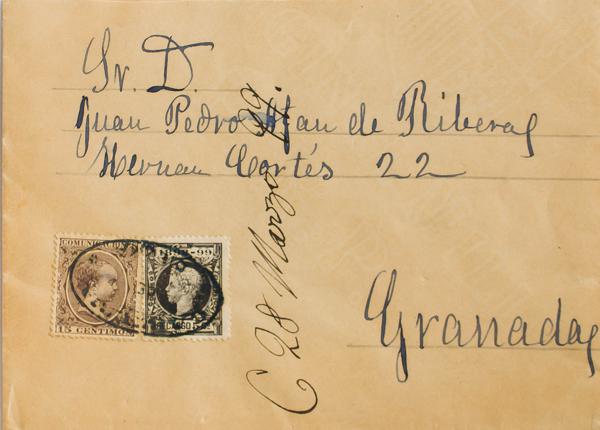 Sr. D.
Juan Pedro Afan de Ribera
Hernan Cortés 22
Granada
C 28 Marzo 99.
COMUNICACIONES
15 CENTIMOS
1898-99
RECARGO